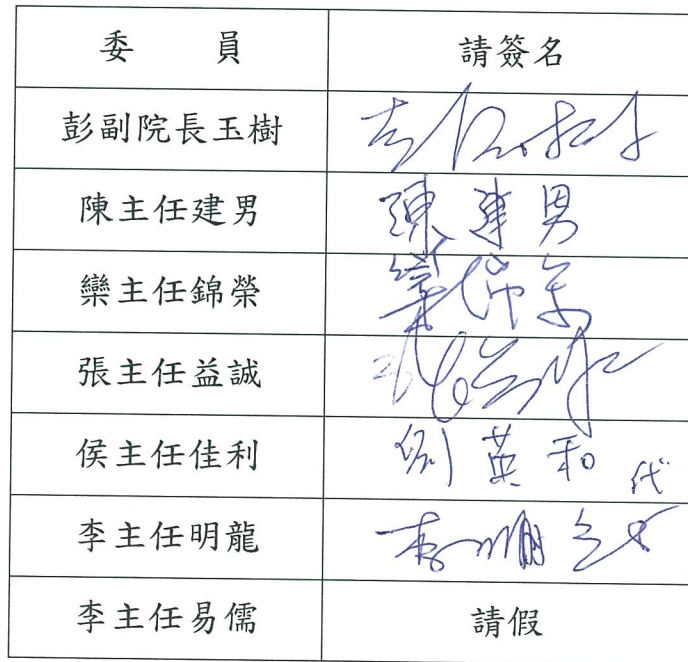 委 員 請簽名
彭副院長玉樹
陳主任建男 陳建男
欒主任錦榮
張主任益誠
侯主任佳利 劉英和 代
李主任明龍
李主任易儒 請假